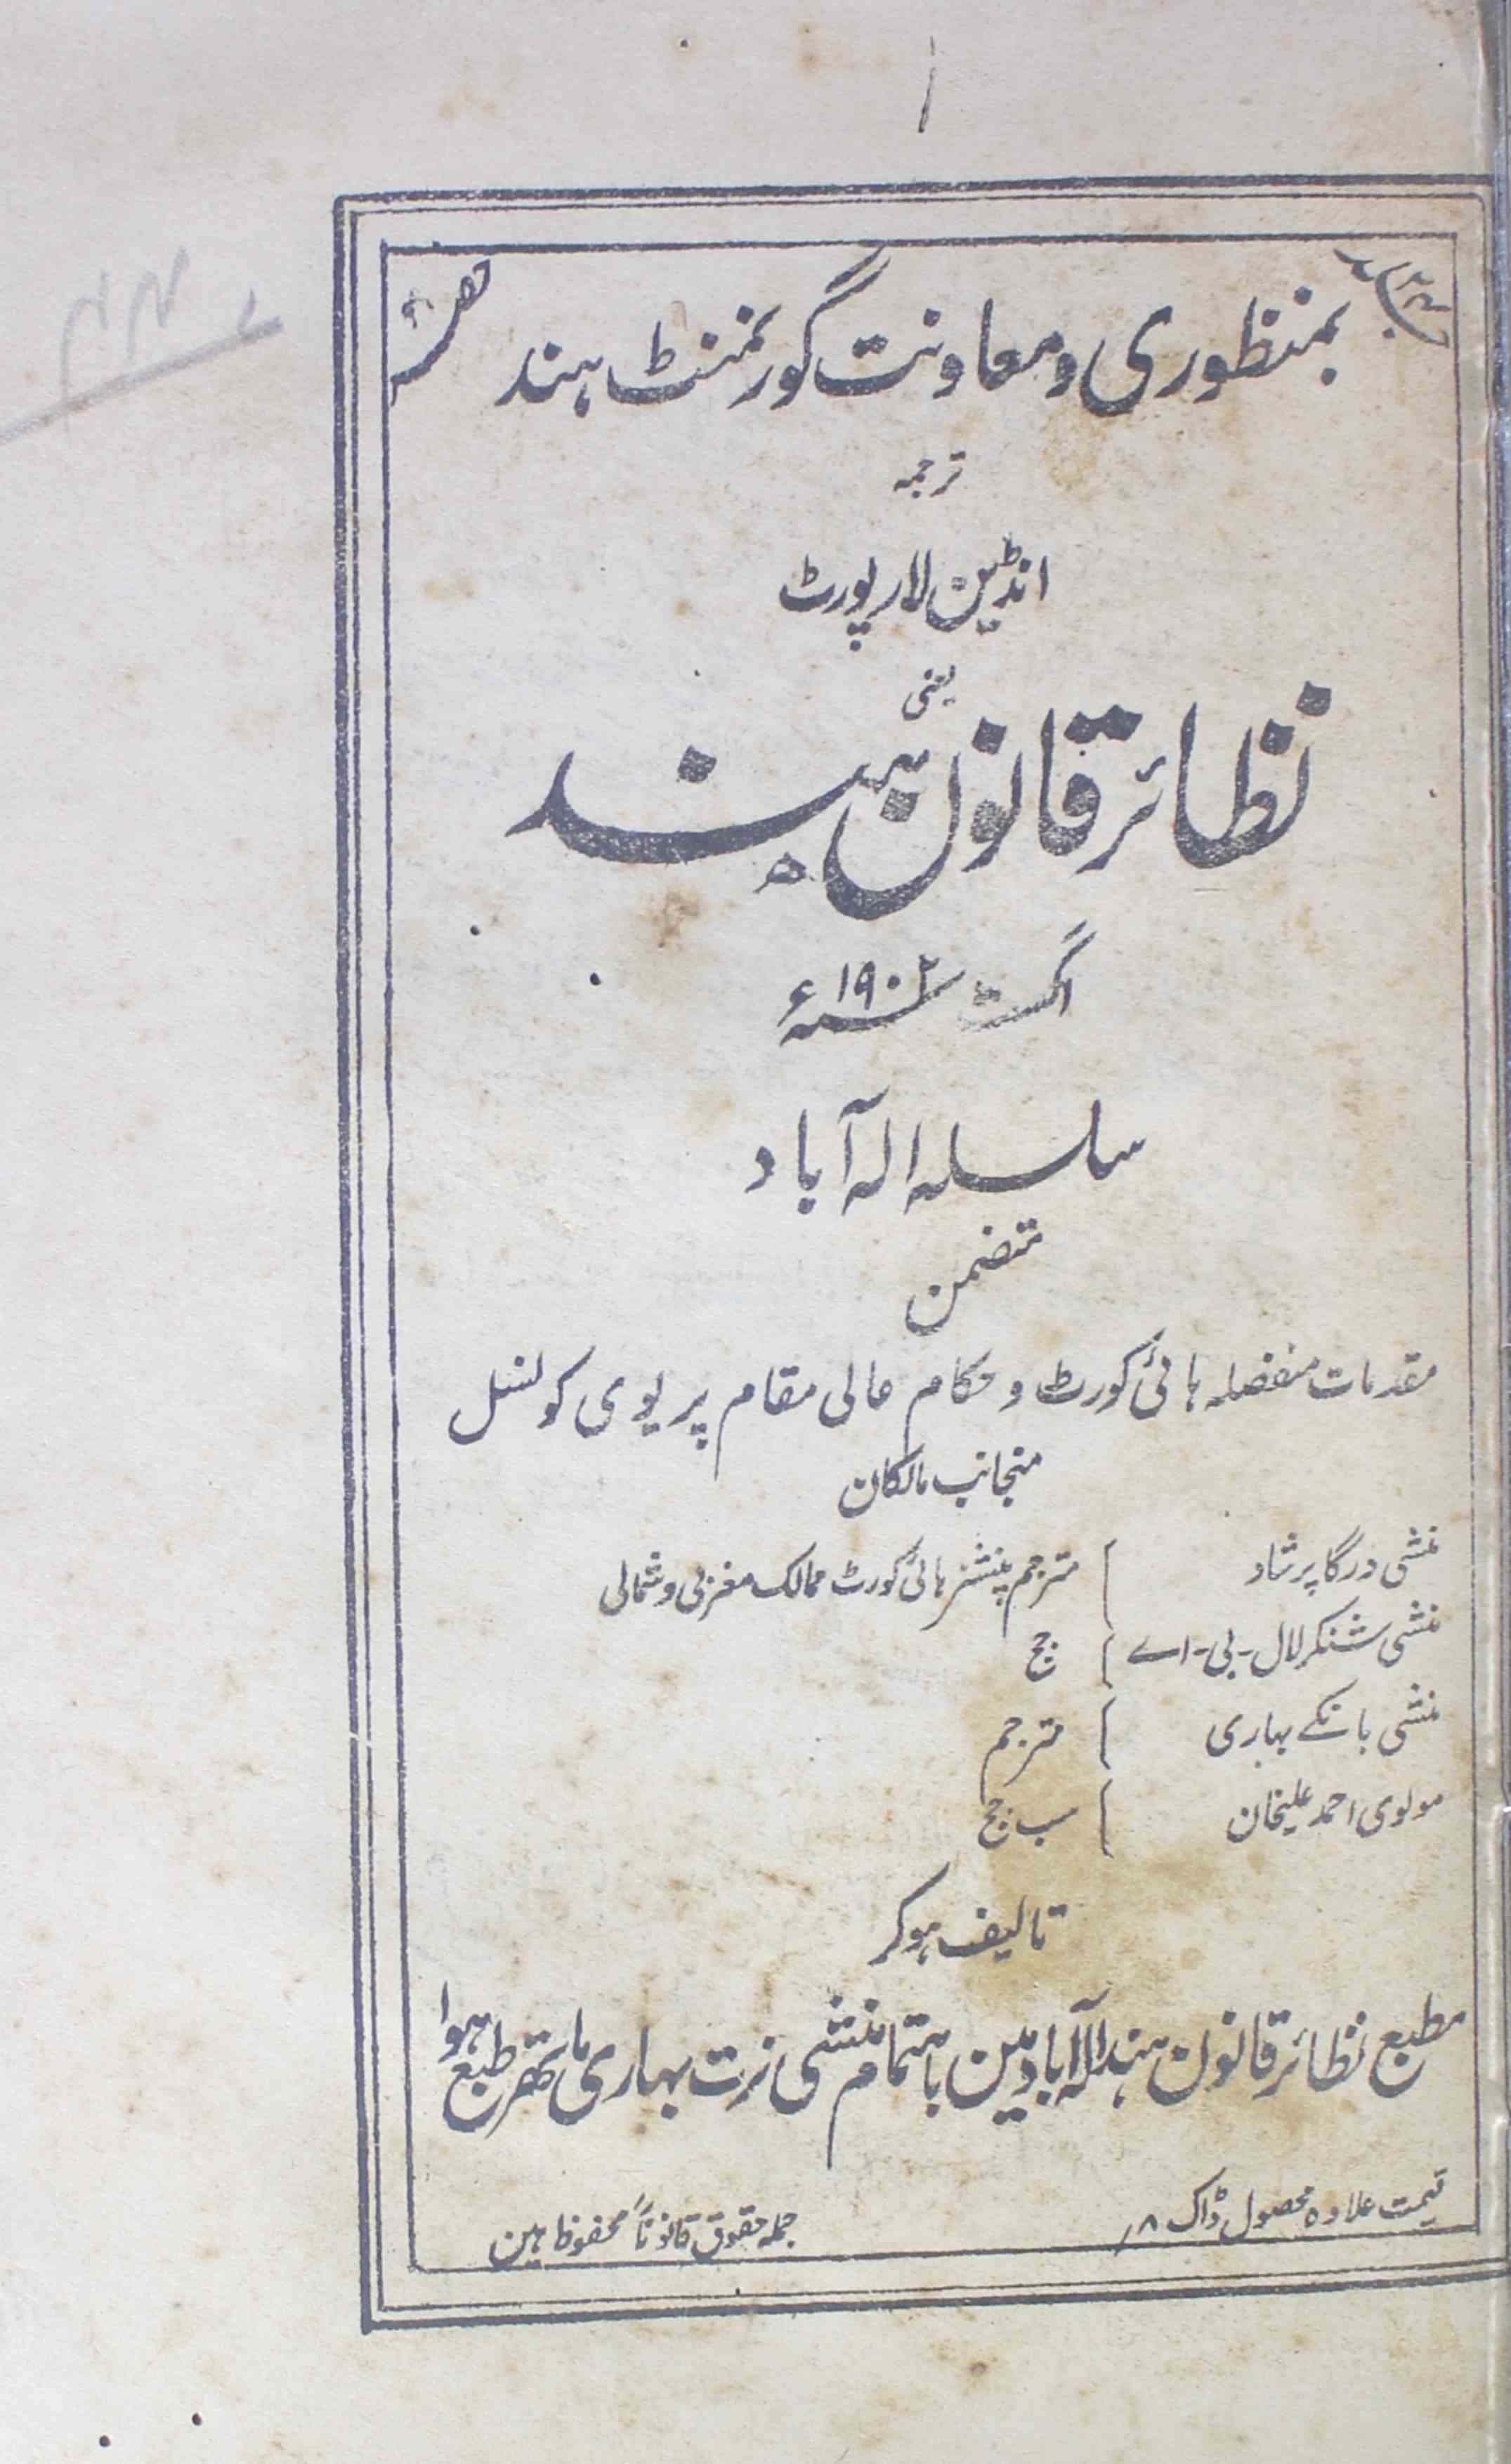 بمنظوری و معاونت گورنمنٹ ہند
ترجمہ
انڈین لا رپورٹ
یعنی
نظائر قانون ہند
اگست ۱۹۰۲ء
سلسلہ الہ آباد
متضمن
مقدمات منفصلہ ہائی کورٹ و حکام عالی مقام پریوی کونسل
منجانب مالکان
منشی درگا پرشاد } مترجم پنشنر ہائی کورٹ ممالک مغربی و شمالی
منشی شنکر لال - بی - اے } جج
منشی بانکے بہاری } مترجم
مولوی احمد علیخان } سب جج
تالیف ہوکر
مطبع نظائر قانون ہند الہ آباد مین باہتمام منشی نرت بہاری ماتھر طبع ہوا
قیمت علاوہ محصول ڈاک ۸؍
جملہ حقوق قانوناً محفوظ ہین